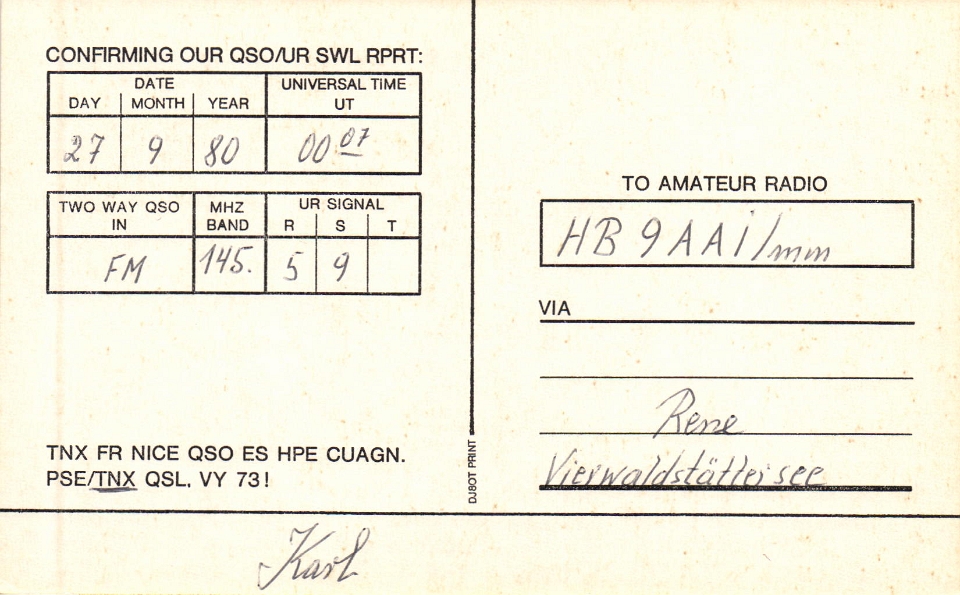 CONFIRMING OUR QSO/UR SWL RPRT:
DATE
DAY MONTH YEAR
UNIVERSAL TIME
UT
27 9 80 00 07
TWO WAY QSO
IN
MHZ
BAND
UR SIGNAL
R S T
FM 145. 5 9
TNX FR NICE QSO ES HPE CUAGN.
PSE/TNX QSL, VY 73!
Karl
DJ8OT PRINT
TO AMATEUR RADIO
HB9AAI/mm
VIA
Rene
Vierwaldstättersee